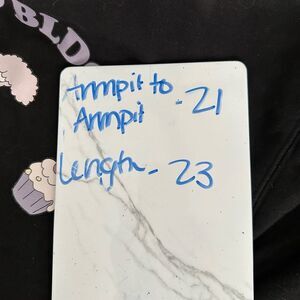 OBLD.
Armpit to
Armpit - 21
Length - 23